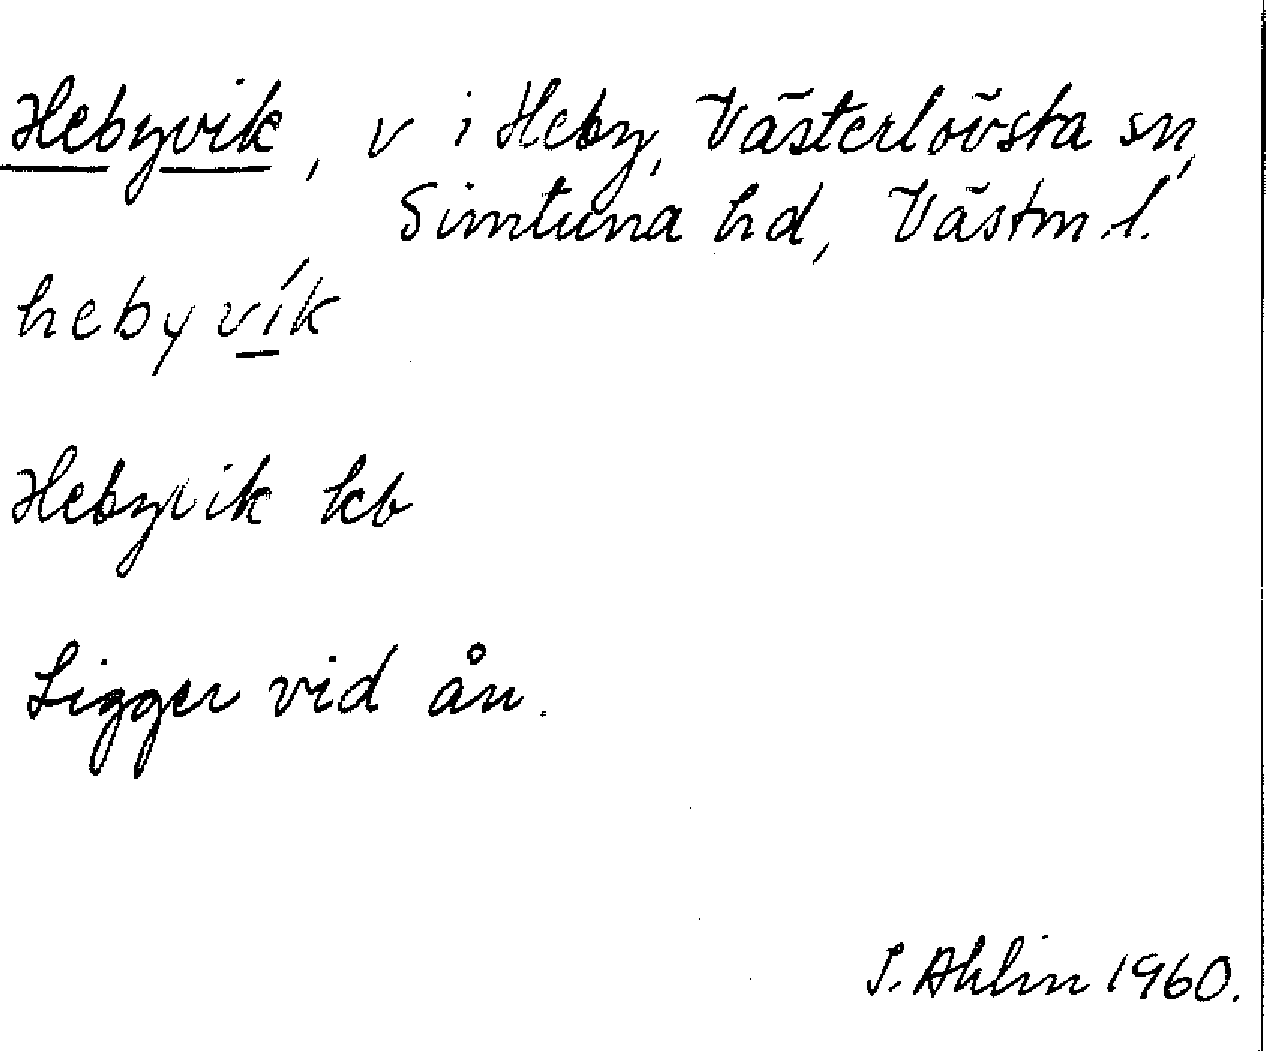 Hebyvik, v i Heby, Västerlövsta sn,
Simtuna hd, Västm l.
hebyvík
Hebyvik kb
Ligger vid ån.
S. Ahlin 1960.